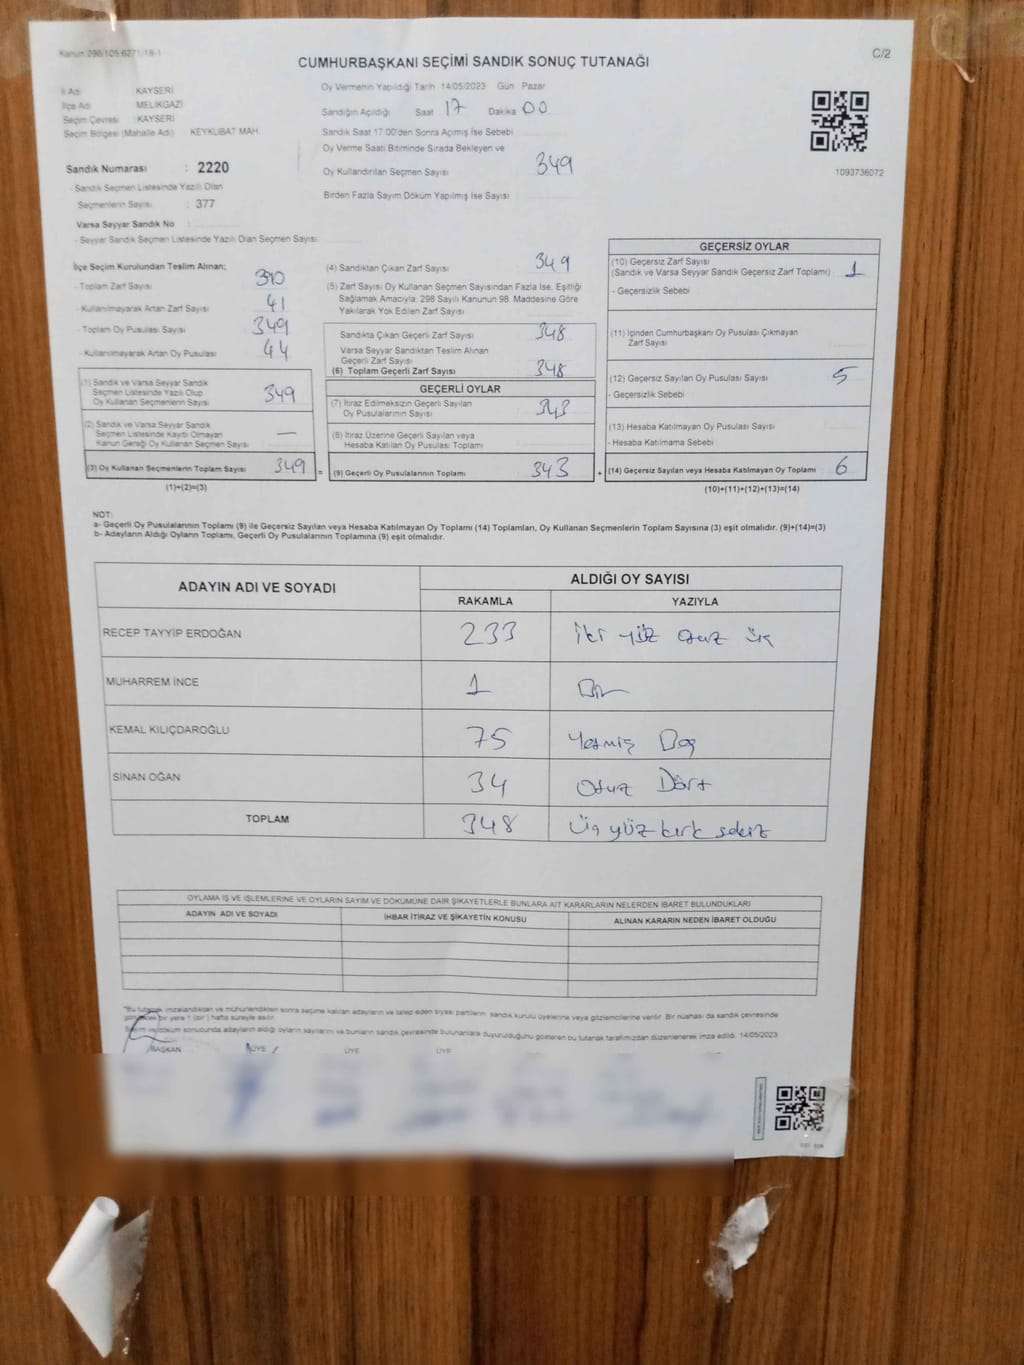 Kanun 298/105.6271/18-1
C/2
CUMHURBAŞKANI SEÇİMİ SANDIK SONUÇ TUTANAĞI
İl Adı KAYSERİ
İlçe Adı MELİKGAZİ
Seçim Çevresi KAYSERİ
Seçim Bölgesi (Mahalle Adı) KEYKUBAT MAH.
Sandık Numarası : 2220
- Sandık Seçmen Listesinde Yazılı Olan
Seçmenlerin Sayısı : 377
Varsa Seyyar Sandık No :
- Seyyar Sandık Seçmen Listesinde Yazılı Olan Seçmen Sayısı:
Oy Vermenin Yapıldığı Tarih 14/05/2023 Gün Pazar
Sandığın Açıldığı Saat 17 Dakika 00
Sandık Saat 17.00'den Sonra Açımış İse Sebebi
Oy Verme Saati Bitiminde Sırada Bekleyen ve
Oy Kullandırılan Seçmen Sayısı 349
Birden Fazla Sayım Döküm Yapılmış İse Sayısı
1093736072
İlçe Seçim Kurulundan Teslim Alınan;
- Toplam Zarf Sayısı 390
- Kullanılmayarak Artan Zarf Sayısı 41
- Toplam Oy Pusulası Sayısı 349
- Kullanılmayarak Artan Oy Pusulası 44
(1) Sandık ve Varsa Seyyar Sandık
Seçmen Listesinde Yazılı Olup
Oy Kullanan Seçmenlerin Sayısı 349
(2) Sandık ve Varsa Seyyar Sandık
Seçmen Listesinde Kayıtlı Olmayan
Kanun Gereği Oy Kullanan Seçmen Sayısı —
(3) Oy Kullanan Seçmenlerin Toplam Sayısı 349 =
(1)+(2)=(3)
(4) Sandıktan Çıkan Zarf Sayısı 349
(5) Zarf Sayısı Oy Kullanan Seçmen Sayısından Fazla İse, Eşitliği
Sağlamak Amacıyla, 298 Sayılı Kanunun 98. Maddesine Göre
Yakılarak Yok Edilen Zarf Sayısı
Sandıkta Çıkan Geçerli Zarf Sayısı 348
Varsa Seyyar Sandıktan Teslim Alınan
Geçerli Zarf Sayısı
(6) Toplam Geçerli Zarf Sayısı 348
GEÇERLİ OYLAR
(7) İtiraz Edilmeksizin Geçerli Sayılan
Oy Pusulalarının Sayısı 343
(8) İtiraz Üzerine Geçerli Sayılan veya
Hesaba Katılan Oy Pusulası Toplamı
(9) Geçerli Oy Pusulalarının Toplamı 343 +
GEÇERSİZ OYLAR
(10) Geçersiz Zarf Sayısı
(Sandık ve Varsa Seyyar Sandık Geçersiz Zarf Toplamı) 1
- Geçersizlik Sebebi
(11) İçinden Cumhurbaşkanı Oy Pusulası Çıkmayan
Zarf Sayısı
(12) Geçersiz Sayılan Oy Pusulası Sayısı 5
- Geçersizlik Sebebi
(13) Hesaba Katılmayan Oy Pusulası Sayısı
- Hesaba Katılmama Sebebi
(14) Geçersiz Sayılan veya Hesaba Katılmayan Oy Toplamı 6
(10)+(11)+(12)+(13)=(14)
NOT:
a- Geçerli Oy Pusulalarının Toplamı (9) ile Geçersiz Sayılan veya Hesaba Katılmayan Oy Toplamı (14) Toplamları, Oy Kullanan Seçmenlerin Toplam Sayısına (3) eşit olmalıdır. (9)+(14)=(3)
b- Adayların Aldığı Oyların Toplamı, Geçerli Oy Pusulalarının Toplamına (9) eşit olmalıdır.
ADAYIN ADI VE SOYADI ALDIĞI OY SAYISI
RAKAMLA YAZIYLA
RECEP TAYYİP ERDOĞAN 233 İki yüz otuz üç
MUHARREM İNCE 1 Bir
KEMAL KILIÇDAROĞLU 75 Yetmiş Beş
SİNAN OĞAN 34 Otuz Dört
TOPLAM 348 Üç yüz kırk sekiz
OYLAMA İŞ VE İŞLEMLERİNE VE OYLARIN SAYIM VE DÖKÜMÜNE DAİR ŞİKAYETLERLE BUNLARA AİT KARARLARIN NELERDEN İBARET BULUNDUKLARI
ADAYIN ADI VE SOYADI İHBAR İTİRAZ VE ŞİKAYETİN KONUSU ALINAN KARARIN NEDEN İBARET OLDUĞU
*Bu tutanak imzalandıktan ve mühürlendikten sonra seçime katılan adayların ve talep eden siyasi partilerin sandık kurulu üyelerine veya gözlemcilerine verilir. Bir nüshası da sandık çevresinde
görülecek bir yere 1 (bir) hafta süreyle asılır.
Sayım ve döküm sonucunda adayların aldığı oyların sayılarını ve bunların sandık çevresinde bulunanlara duyurulduğunu gösteren bu tutanak tarafımızdan düzenlenerek imza edildi. 14/05/2023
BAŞKAN ÜYE ÜYE ÜYE